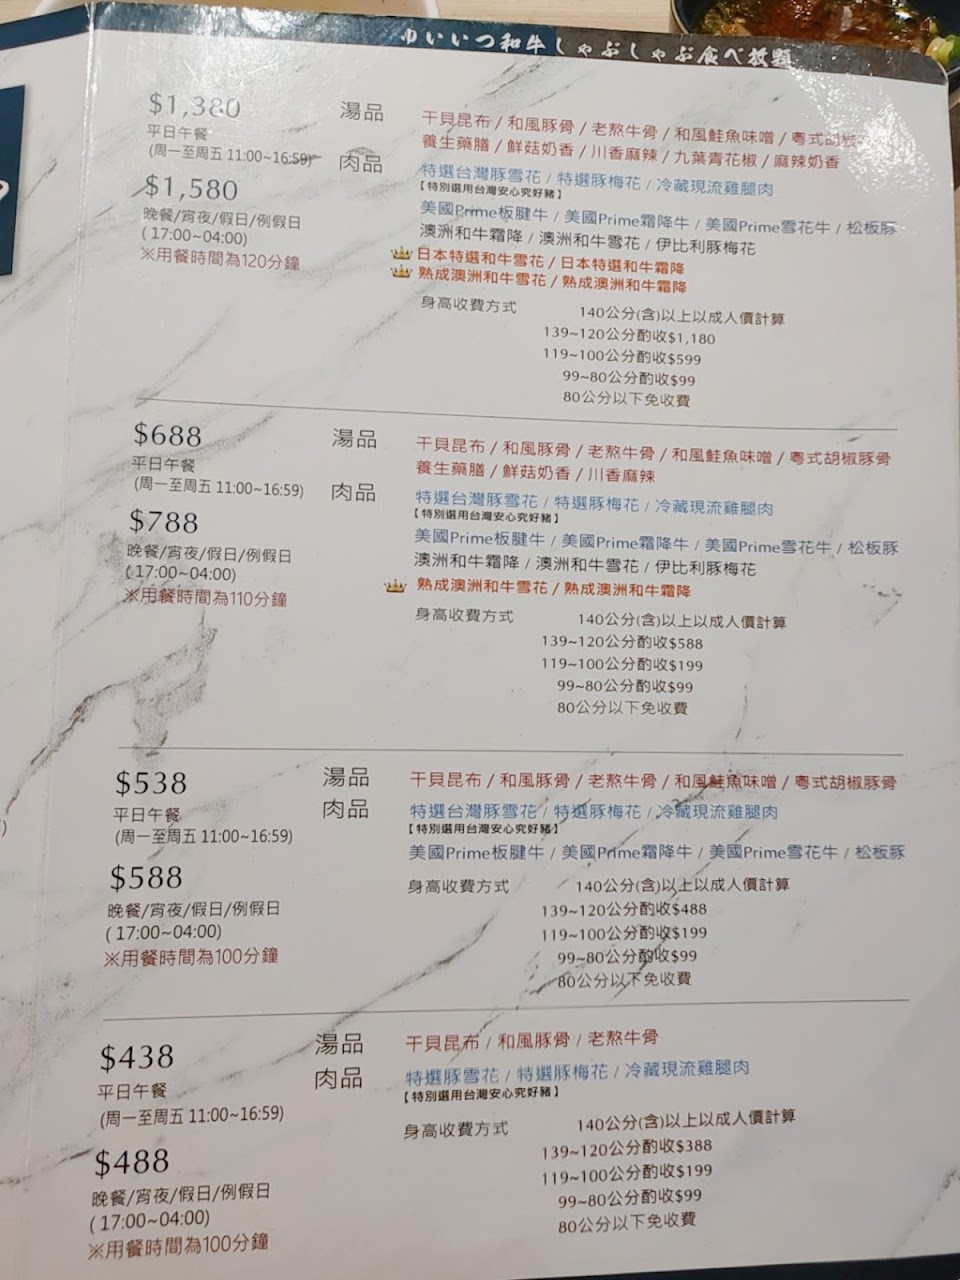 ゆいいつ和牛しゃぶしゃぶ食べ放題
$1,380
平日午餐
(周一至周五 11:00~16:59)
$1,580
晚餐/宵夜/假日/例假日
( 17:00~04:00)
※用餐時間為120分鐘
湯品
干貝昆布 / 和風豚骨 / 老熬牛骨 / 和風鮭魚味噌 / 粵式胡椒
養生藥膳 / 鮮菇奶香 / 川香麻辣 / 九葉青花椒 / 麻辣奶香
肉品
特選台灣豚雪花 / 特選豚梅花 / 冷藏現流雞腿肉
【特別選用台灣安心究好豬】
美國Prime板腱牛 / 美國Prime霜降牛 / 美國Prime雪花牛 / 松板豚
澳洲和牛霜降 / 澳洲和牛雪花 / 伊比利豚梅花
日本特選和牛雪花 / 日本特選和牛霜降
熟成澳洲和牛雪花 / 熟成澳洲和牛霜降
身高收費方式 140公分(含)以上以成人價計算
139~120公分酌收$1,180
119~100公分酌收$599
99~80公分酌收$99
80公分以下免收費
$688
平日午餐
(周一至周五 11:00~16:59)
$788
晚餐/宵夜/假日/例假日
( 17:00~04:00)
※用餐時間為110分鐘
湯品
干貝昆布 / 和風豚骨 / 老熬牛骨 / 和風鮭魚味噌 / 粵式胡椒豚骨
養生藥膳 / 鮮菇奶香 / 川香麻辣
肉品
特選台灣豚雪花 / 特選豚梅花 / 冷藏現流雞腿肉
【特別選用台灣安心究好豬】
美國Prime板腱牛 / 美國Prime霜降牛 / 美國Prime雪花牛 / 松板豚
澳洲和牛霜降 / 澳洲和牛雪花 / 伊比利豚梅花
熟成澳洲和牛雪花 / 熟成澳洲和牛霜降
身高收費方式 140公分(含)以上以成人價計算
139~120公分酌收$588
119~100公分酌收$199
99~80公分酌收$99
80公分以下免收費
$538
平日午餐
(周一至周五 11:00~16:59)
$588
晚餐/宵夜/假日/例假日
( 17:00~04:00)
※用餐時間為100分鐘
湯品
干貝昆布 / 和風豚骨 / 老熬牛骨 / 和風鮭魚味噌 / 粵式胡椒豚骨
肉品
特選台灣豚雪花 / 特選豚梅花 / 冷藏現流雞腿肉
【特別選用台灣安心究好豬】
美國Prime板腱牛 / 美國Prime霜降牛 / 美國Prime雪花牛 / 松板豚
身高收費方式 140公分(含)以上以成人價計算
139~120公分酌收$488
119~100公分酌收$199
99~80公分酌收$99
80公分以下免收費
$438
平日午餐
(周一至周五 11:00~16:59)
$488
晚餐/宵夜/假日/例假日
( 17:00~04:00)
※用餐時間為100分鐘
湯品
干貝昆布 / 和風豚骨 / 老熬牛骨
肉品
特選豚雪花 / 特選豚梅花 / 冷藏現流雞腿肉
【特別選用台灣安心究好豬】
身高收費方式 140公分(含)以上以成人價計算
139~120公分酌收$388
119~100公分酌收$199
99~80公分酌收$99
80公分以下免收費